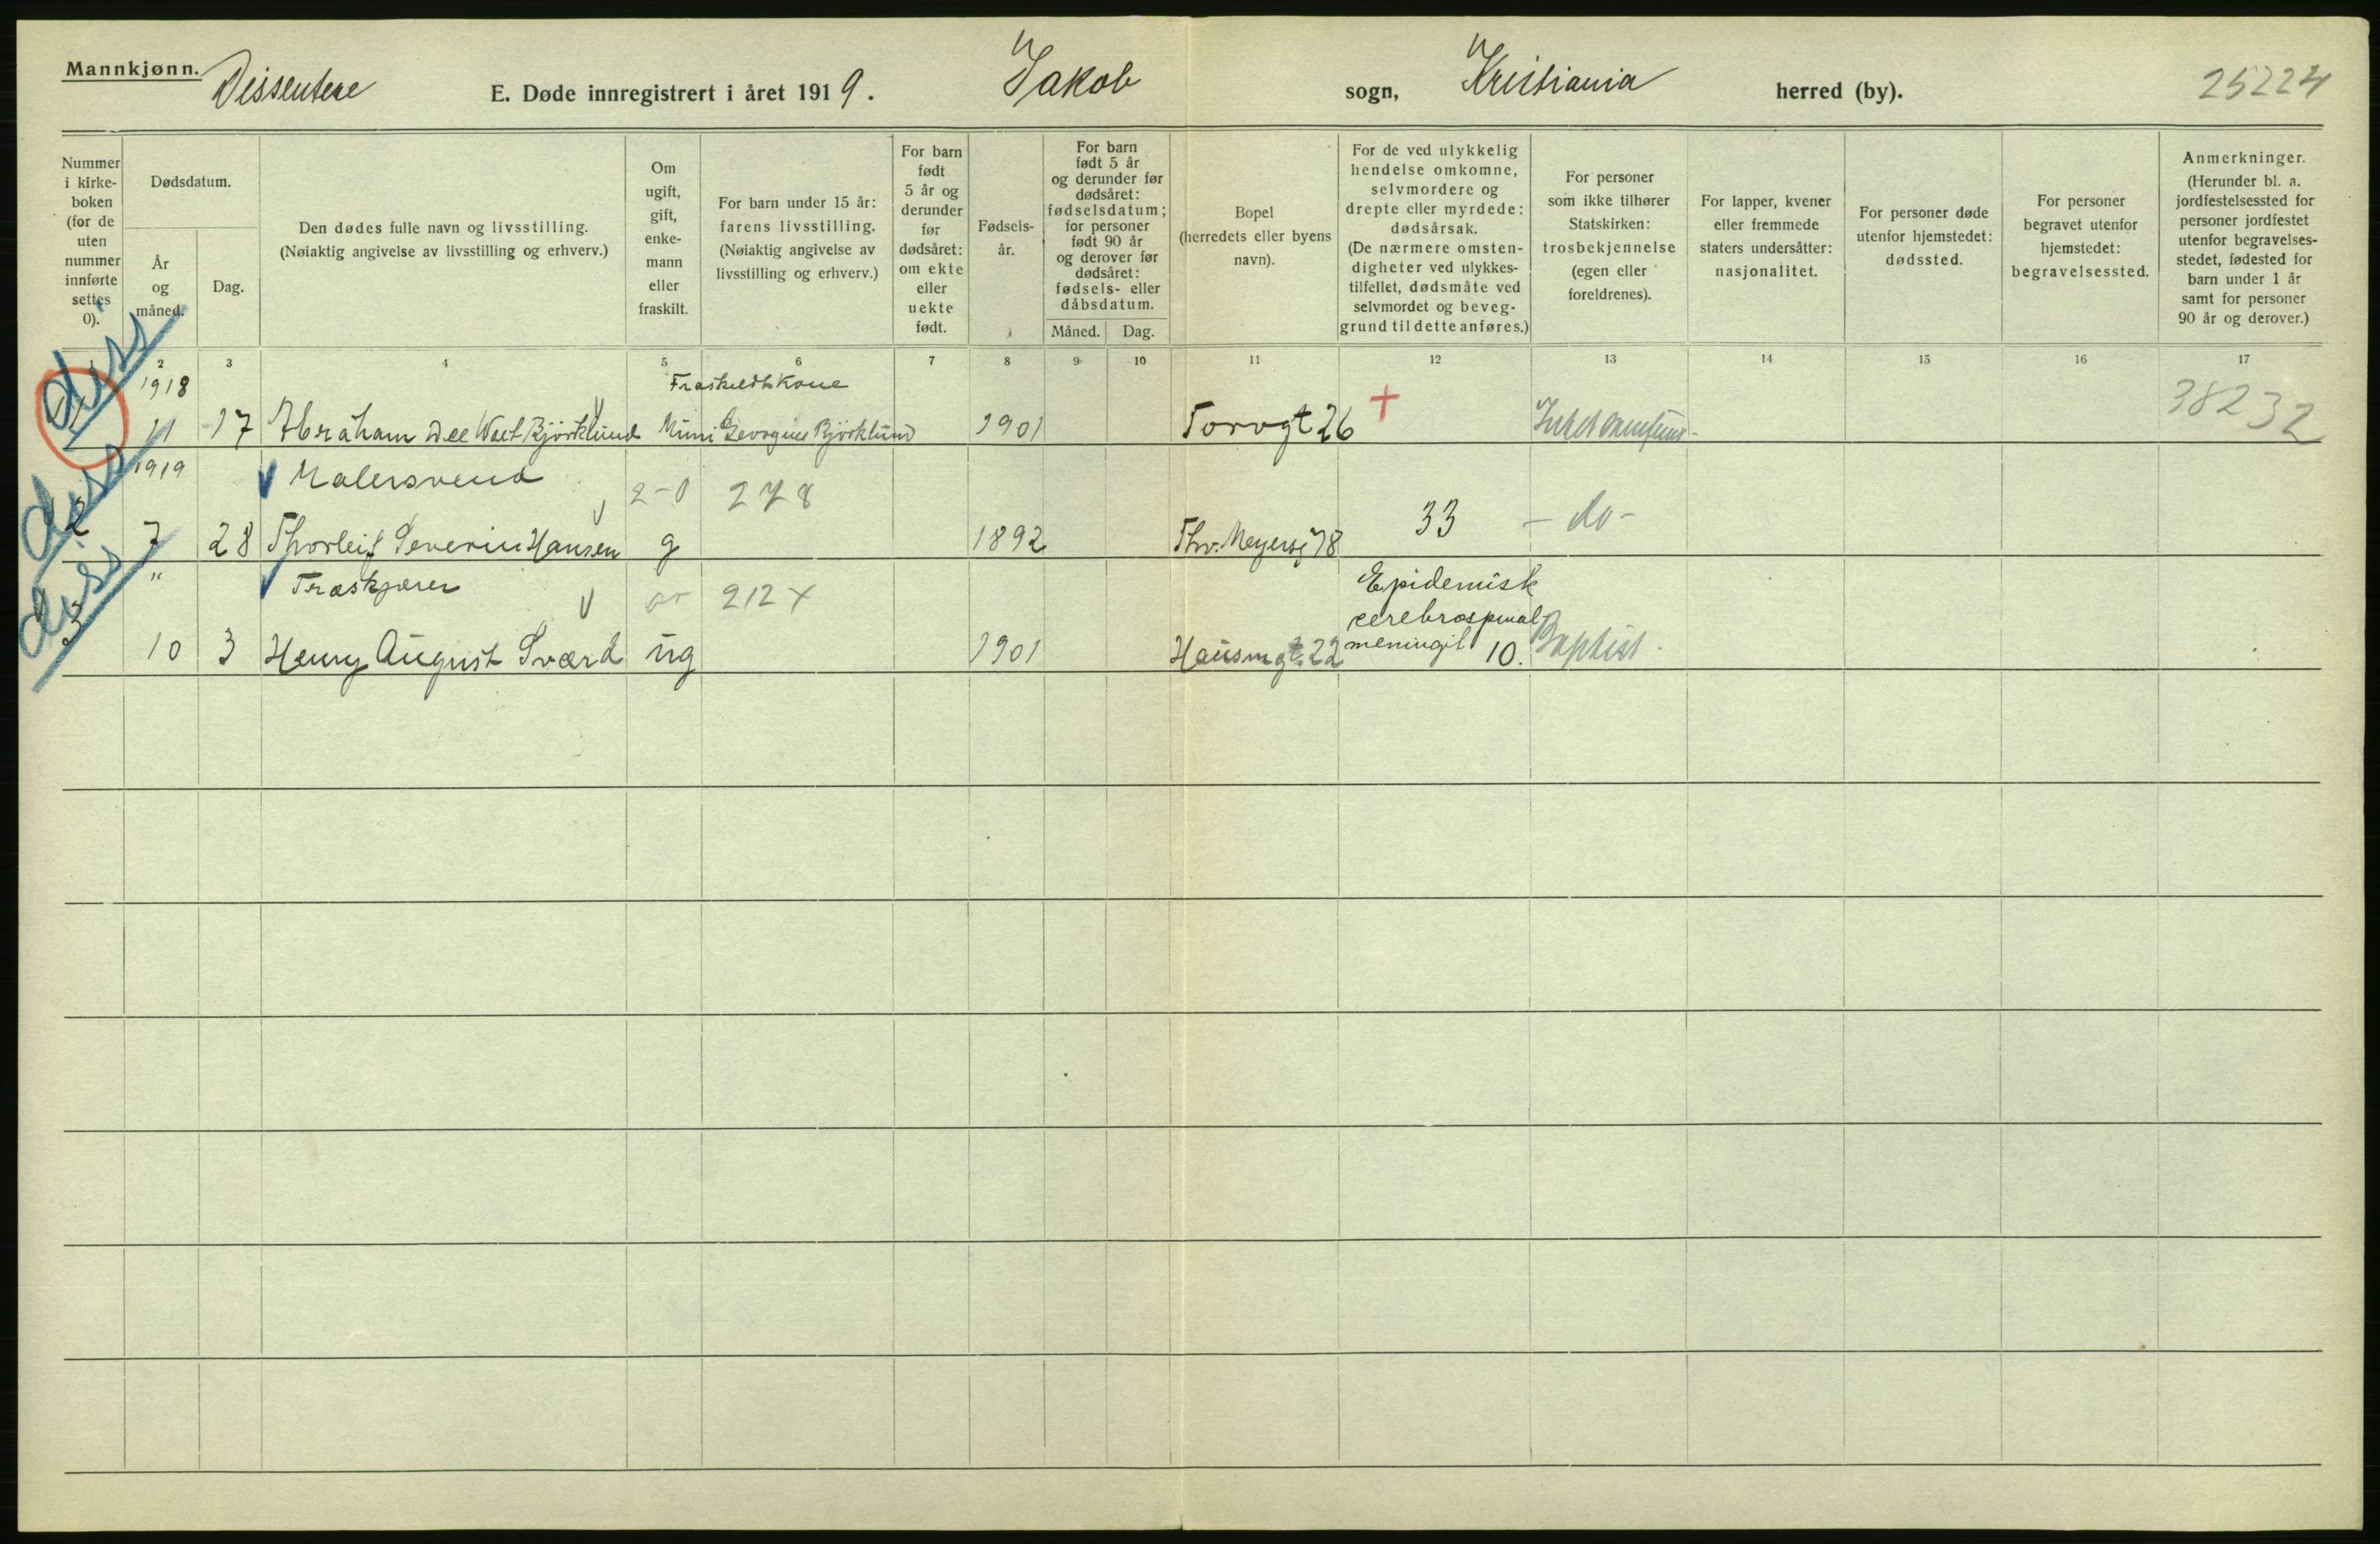 Mannkjønn. Dissentere E. Døde innregistrert i året 1919. Jakob sogn, Kristiania herred (by). 25224
Nummer i kirke-boken (for de uten nummer innførte settes 0).
Dødsdatum.
År og måned.
Dag.
Den dødes fulle navn og livsstilling.
(Nøiaktig angivelse av livsstilling og erhverv.)
Om ugift, gift, enke-mann eller fraskilt.
For barn under 15 år: farens livsstilling.
(Nøiaktig angivelse av livsstilling og erhverv.)
For barn født 5 år og derunder før dødsåret: om ekte eller uekte født.
Fødsels-år.
For barn født 5 år og derunder før dødsåret: fødselsdatum; for personer født 90 år og derover før dødsåret: fødsels- eller dåbsdatum.
Måned. Dag.
Bopel (herredets eller byens navn).
For de ved ulykkelig hendelse omkomne, selvmordere og drepte eller myrdede: dødsårsak. (De nærmere omsten-digheter ved ulykkes-tilfellet, dødsmåte ved selvmordet og beveg-grund til dette anføres.)
For personer som ikke tilhører Statskirken: trosbekjennelse (egen eller foreldrenes).
For lapper, kvener eller fremmede staters undersåtter: nasjonalitet.
For personer døde utenfor hjemstedet: dødssted.
For personer begravet utenfor hjemstedet: begravelsessted.
Anmerkninger. (Herunder bl. a. jordfestelsessted for personer jordfestet utenfor begravelses-stedet, fødested for barn under 1 år samt for personer 90 år og derover.)
1 2 3 4 5 6 7 8 9 10 11 12 13 14 15 16 17
diss 1918 Fraskildt Kone 38232
11 17 Abraham Dee Björklund Georgine Björklund 1901 Torvgt 26 +
diss 1919 Malersvend 2-0 278
2 7 28 Thorleif Severin Hansen g 1892 Thv. Meyersg 78 33 - do -
diss " Træskjærer 212 x Epidemisk
cerebrospinal
3 10 3 Henry August Sværd ug 1901 Hausmgt. 22 meningit 10. Baptist